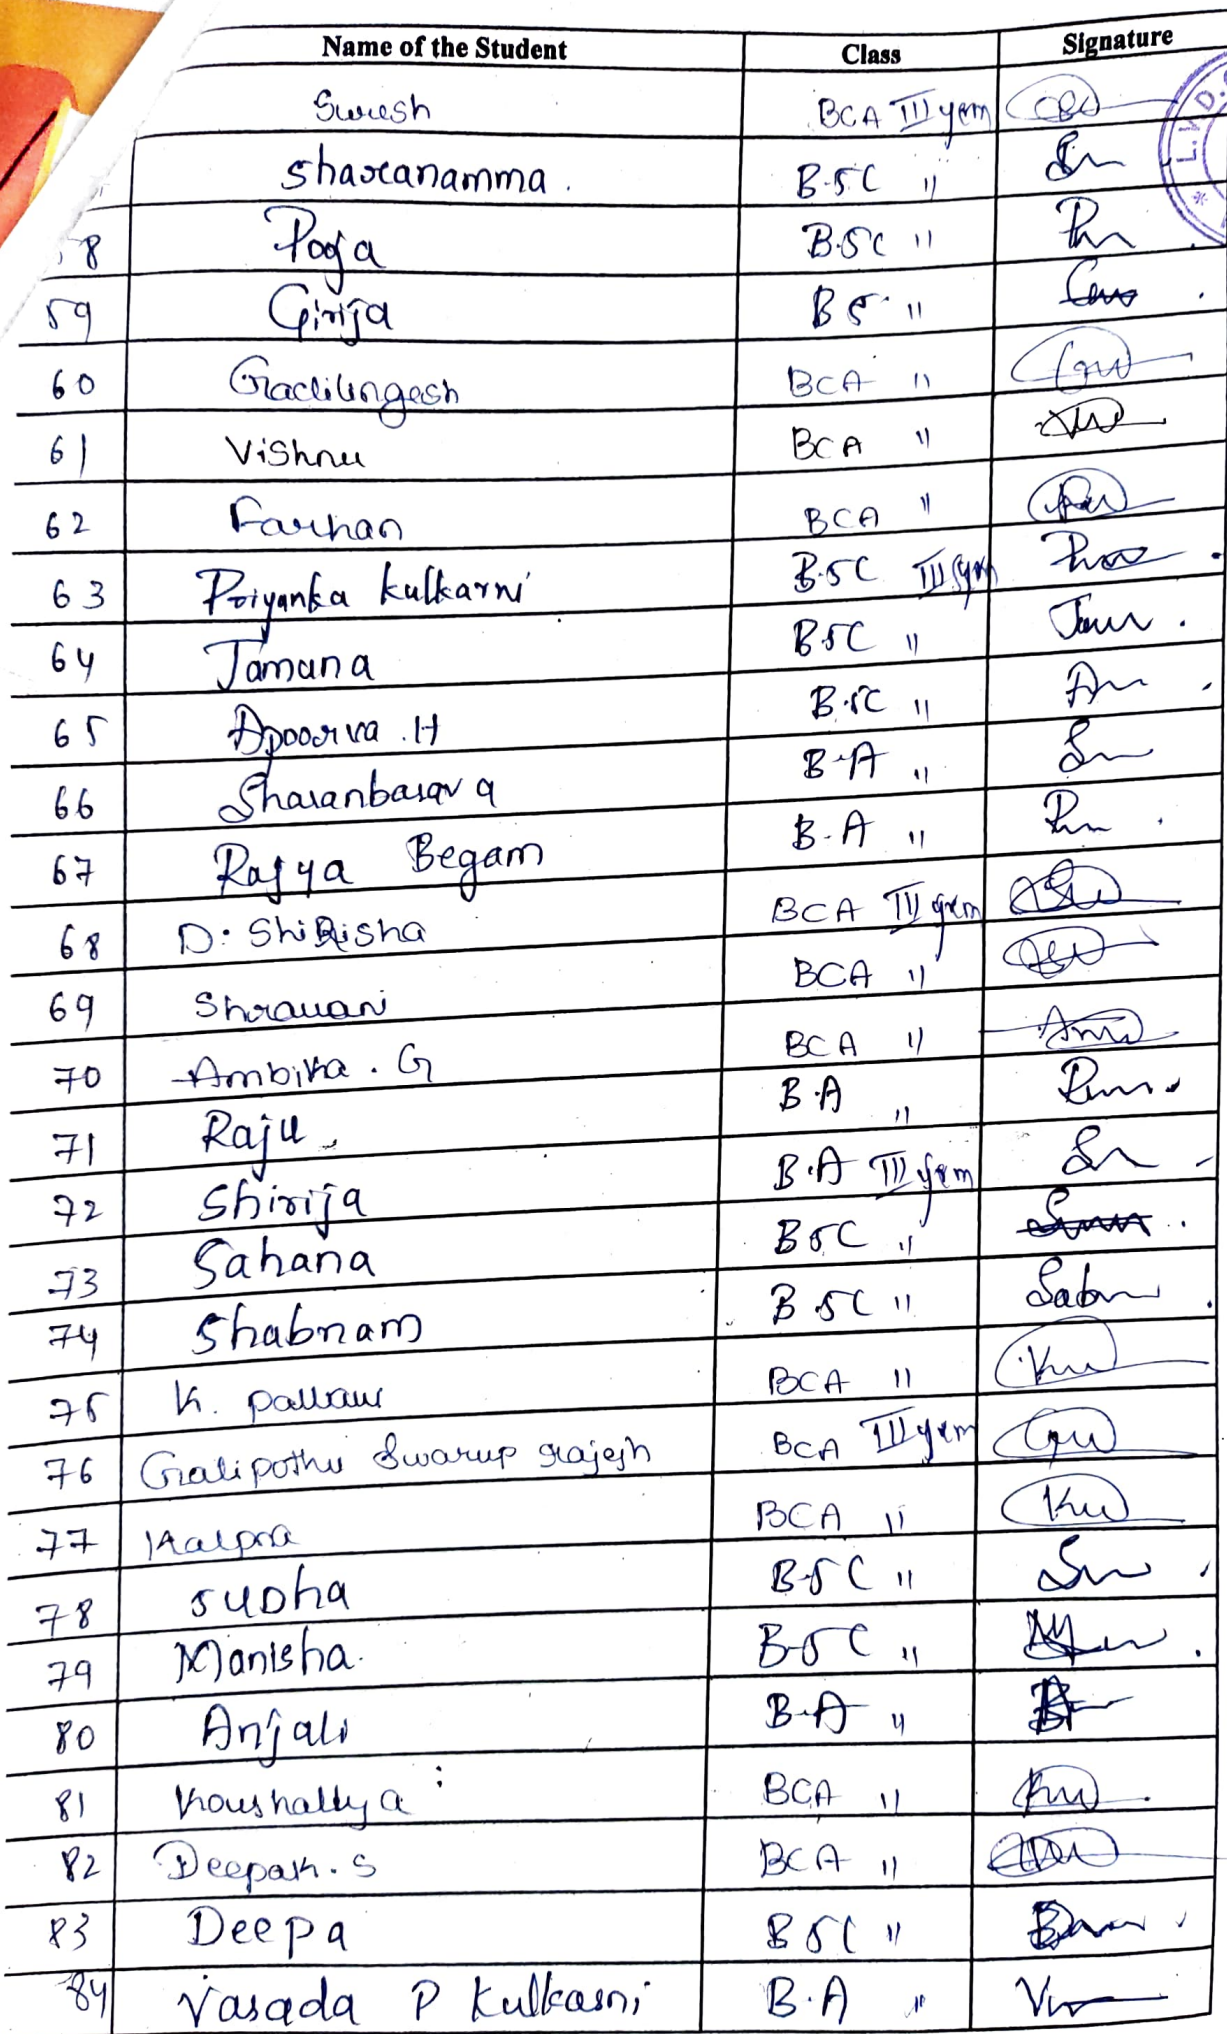 Name of the Student Class Signature
Suresh BCA III yem
sharanamma. B.SC "
8 Pooja B.SC "
59 Girija B S "
60 Gadilingesh BCA "
61 Vishnu BCA "
62 Farhan BCA "
63 Priyanka kulkarni B.SC III yem
64 Tamana B.SC "
65 Apoorva .H B.SC "
66 Sharanbasava B.A "
67 Rajya Begam B.A "
68 D. ShiRisha BCA III yem
69 Shravani BCA "
70 Ambika . G BCA "
71 Raju B.A "
72 Shirija B.A III yem
73 Sahana BSC "
74 Shabnam B SC "
75 K. pallavi BCA "
76 Galipothu Swarup rajesh BCA III yem
77 Kalpna BCA "
78 SUDha B.SC "
79 Manisha. B.SC "
80 Anjali B.A "
81 Koushallya BCA "
82 Deepak. S BCA "
83 Deepa BSC "
84 Varada P Kulkarni B.A "
L.V.D.